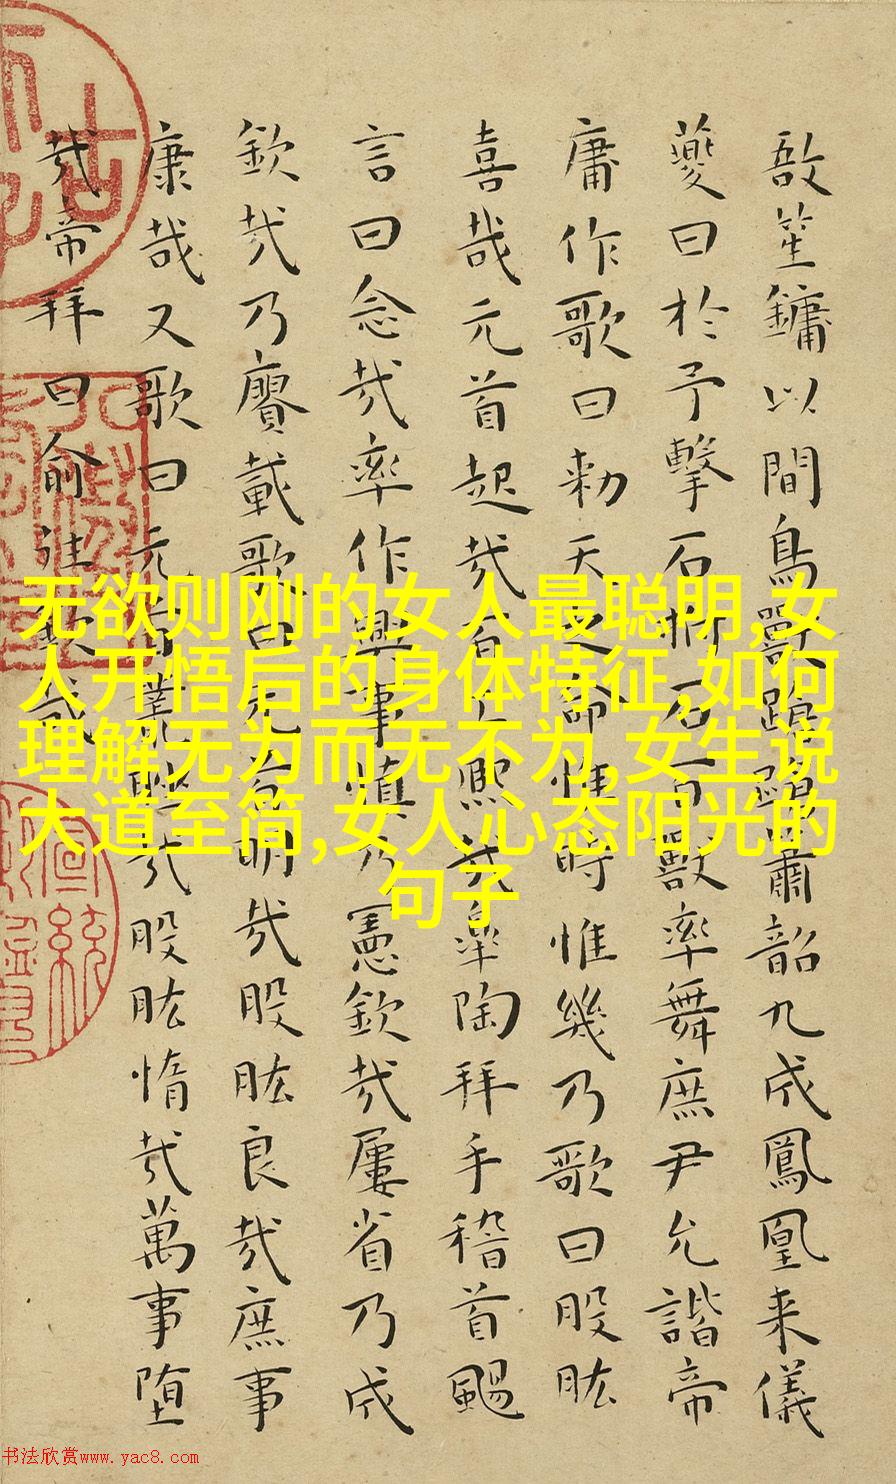 敔笙鏞以間鳥獸蹌蹌簫韶九成鳳凰来儀
夔曰於予擊石拊石百獸率舞庶尹允諧帝
庸作歌曰勑天之命惟時惟幾乃歌曰股肱
喜哉元首起哉百工熙哉皋陶拜手稽首颺
言曰念哉率作興事慎乃憲欽哉屢省乃成
欽哉乃賡載歌曰元首明哉股肱良哉庶事
康哉又歌曰元首叢脞哉股肱惰哉萬事堕
哉帝拜曰俞往欽哉
无欲则刚的女人最聪明,女
人开悟后的身体特征,如何
理解无为而无不为,女生说
大道至简,女人心态阳光的
句子
书法欣赏www.yac8.com